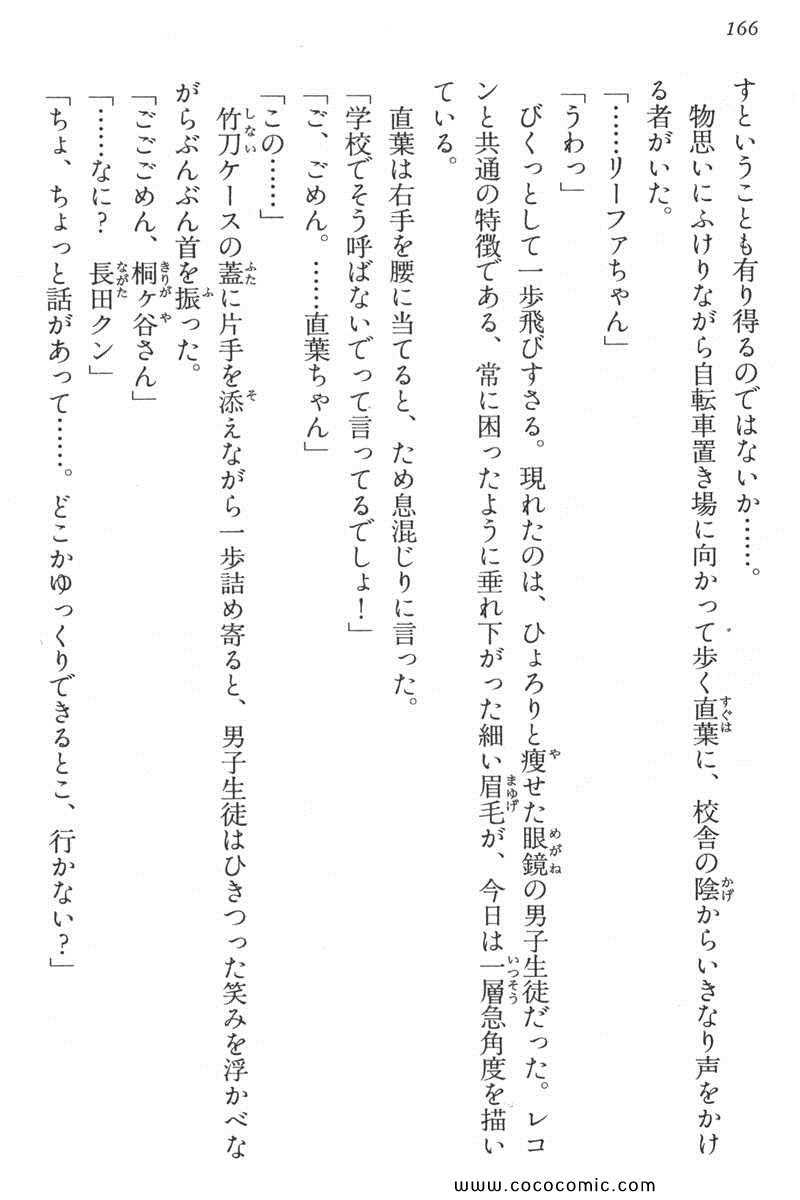 166
すということも有り得るのではないか……。
物思いにふけりながら自転車置き場に向かって歩く直葉に、校舎の陰からいきなり声をかけ
る者がいた。
「……リーファちゃん」
「うわっ」
びくっとして一歩飛びすさる。現れたのは、ひょろりと痩せた眼鏡の男子生徒だった。レコ
ンと共通の特徴である、常に困ったように垂れ下がった細い眉毛が、今日は一層急角度を描い
ている。
直葉は右手を腰に当てると、ため息混じりに言った。
「学校でそう呼ばないでって言ってるでしょ！」
「ご、ごめん。……直葉ちゃん」
「この……」
竹刀ケースの蓋に片手を添えながら一歩詰め寄ると、男子生徒はひきつった笑みを浮かべな
がらぶんぶん首を振った。
「ごごごめん、桐ヶ谷さん」
「……なに？　長田クン」
「ちょ、ちょっと話があって……。どこかゆっくりできるとこ、行かない？」
COCO漫画
www.cococomic.com